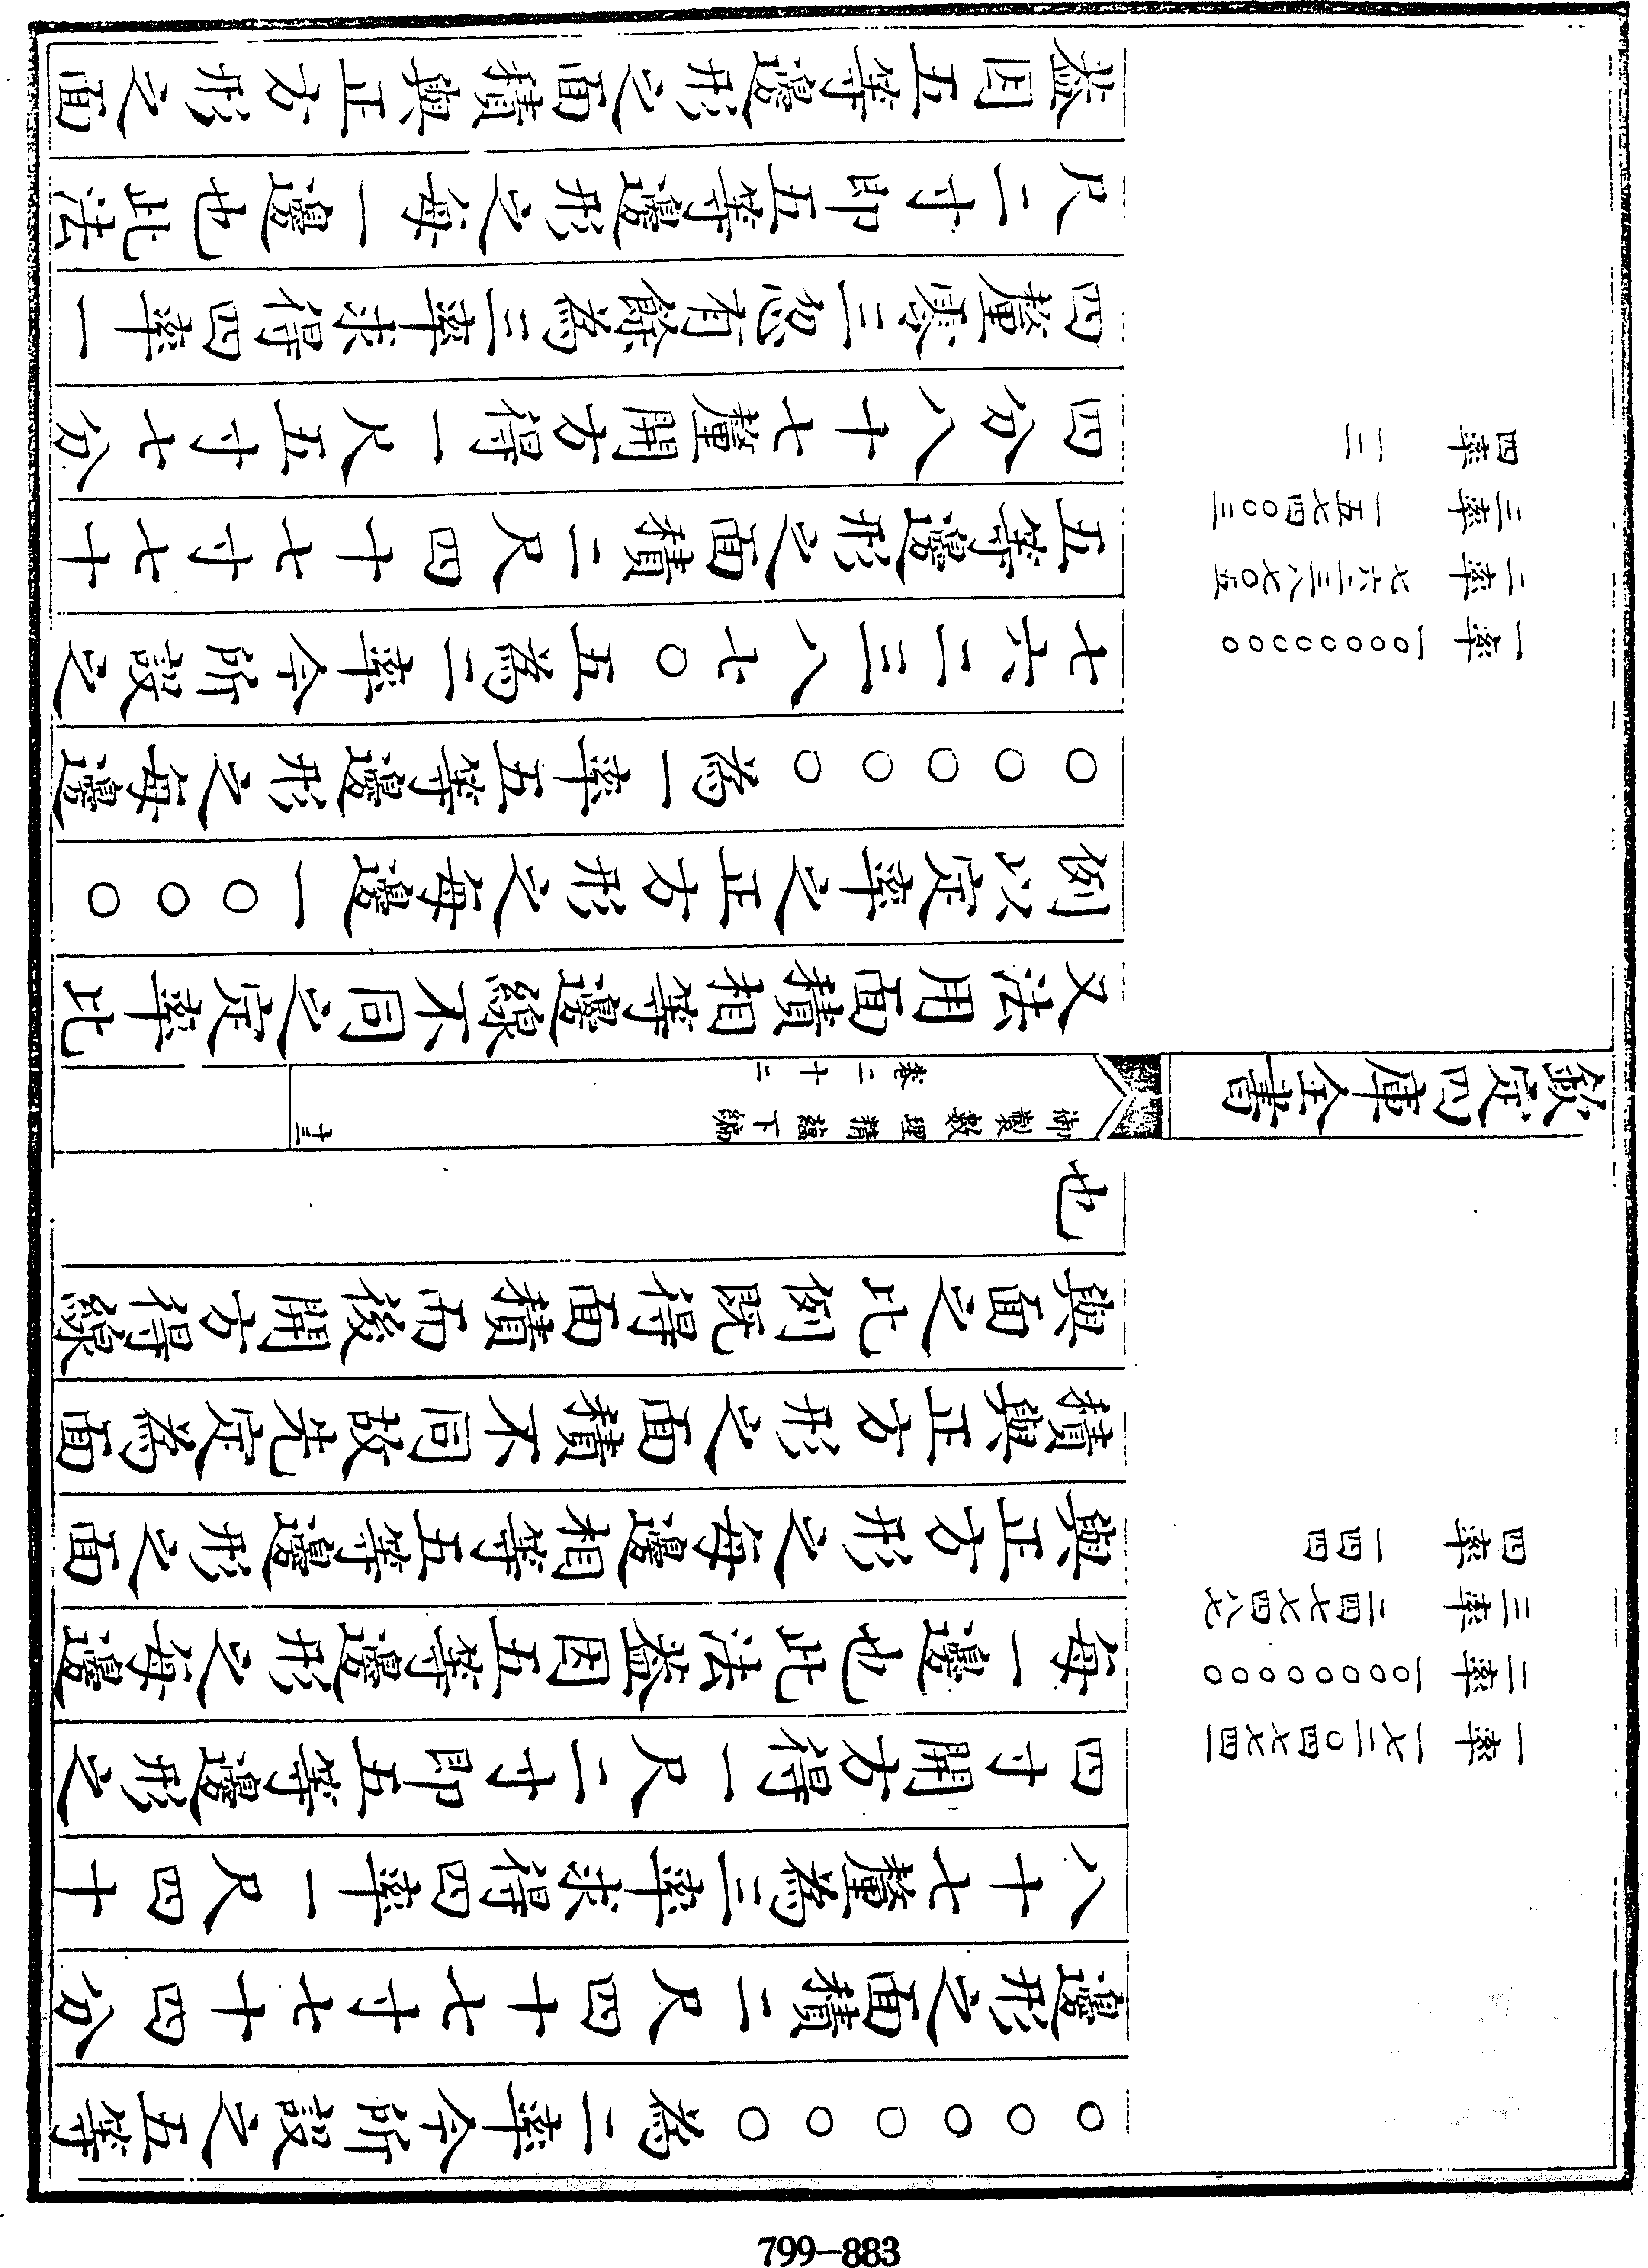 一率 一七二○四七七四一
二率 一○○○○○○○○
三率 二四七七四八七
四率 一四四
○○○○○○為二率今所設之五等
邊形之面積二尺四十七寸七十四分
八十七釐為三率求得四率一尺四十
四寸開方得一尺二寸即五等邊形之
每一邊也此法葢因五等邊形之每邊
與正方形之每邊相等五等邊形之面
積與正方形之面積不同故先定為面
與面之比例既得面積而後開方得線
也
欽定四庫全書
御製數理精蘊下編
卷二十二
十三
一率 一○○○○○○○○
二率 七六二三八七○五
三率 一五七四○○三
四率 一二
又法用面積相等邊線不同之定率比
例以定率之正方形之每邊一○○○
○○○○○為一率五等邊形之每邊
七六二三八七○五為二率今所設之
五等邊形之面積二尺四十七寸七十
四分八十七釐開方得一尺五寸七分
四釐零三忽有餘為三率求得四率一
尺二寸即五等邊形之每一邊也此法
葢因五等邊形之面積與正方形之面
799-883